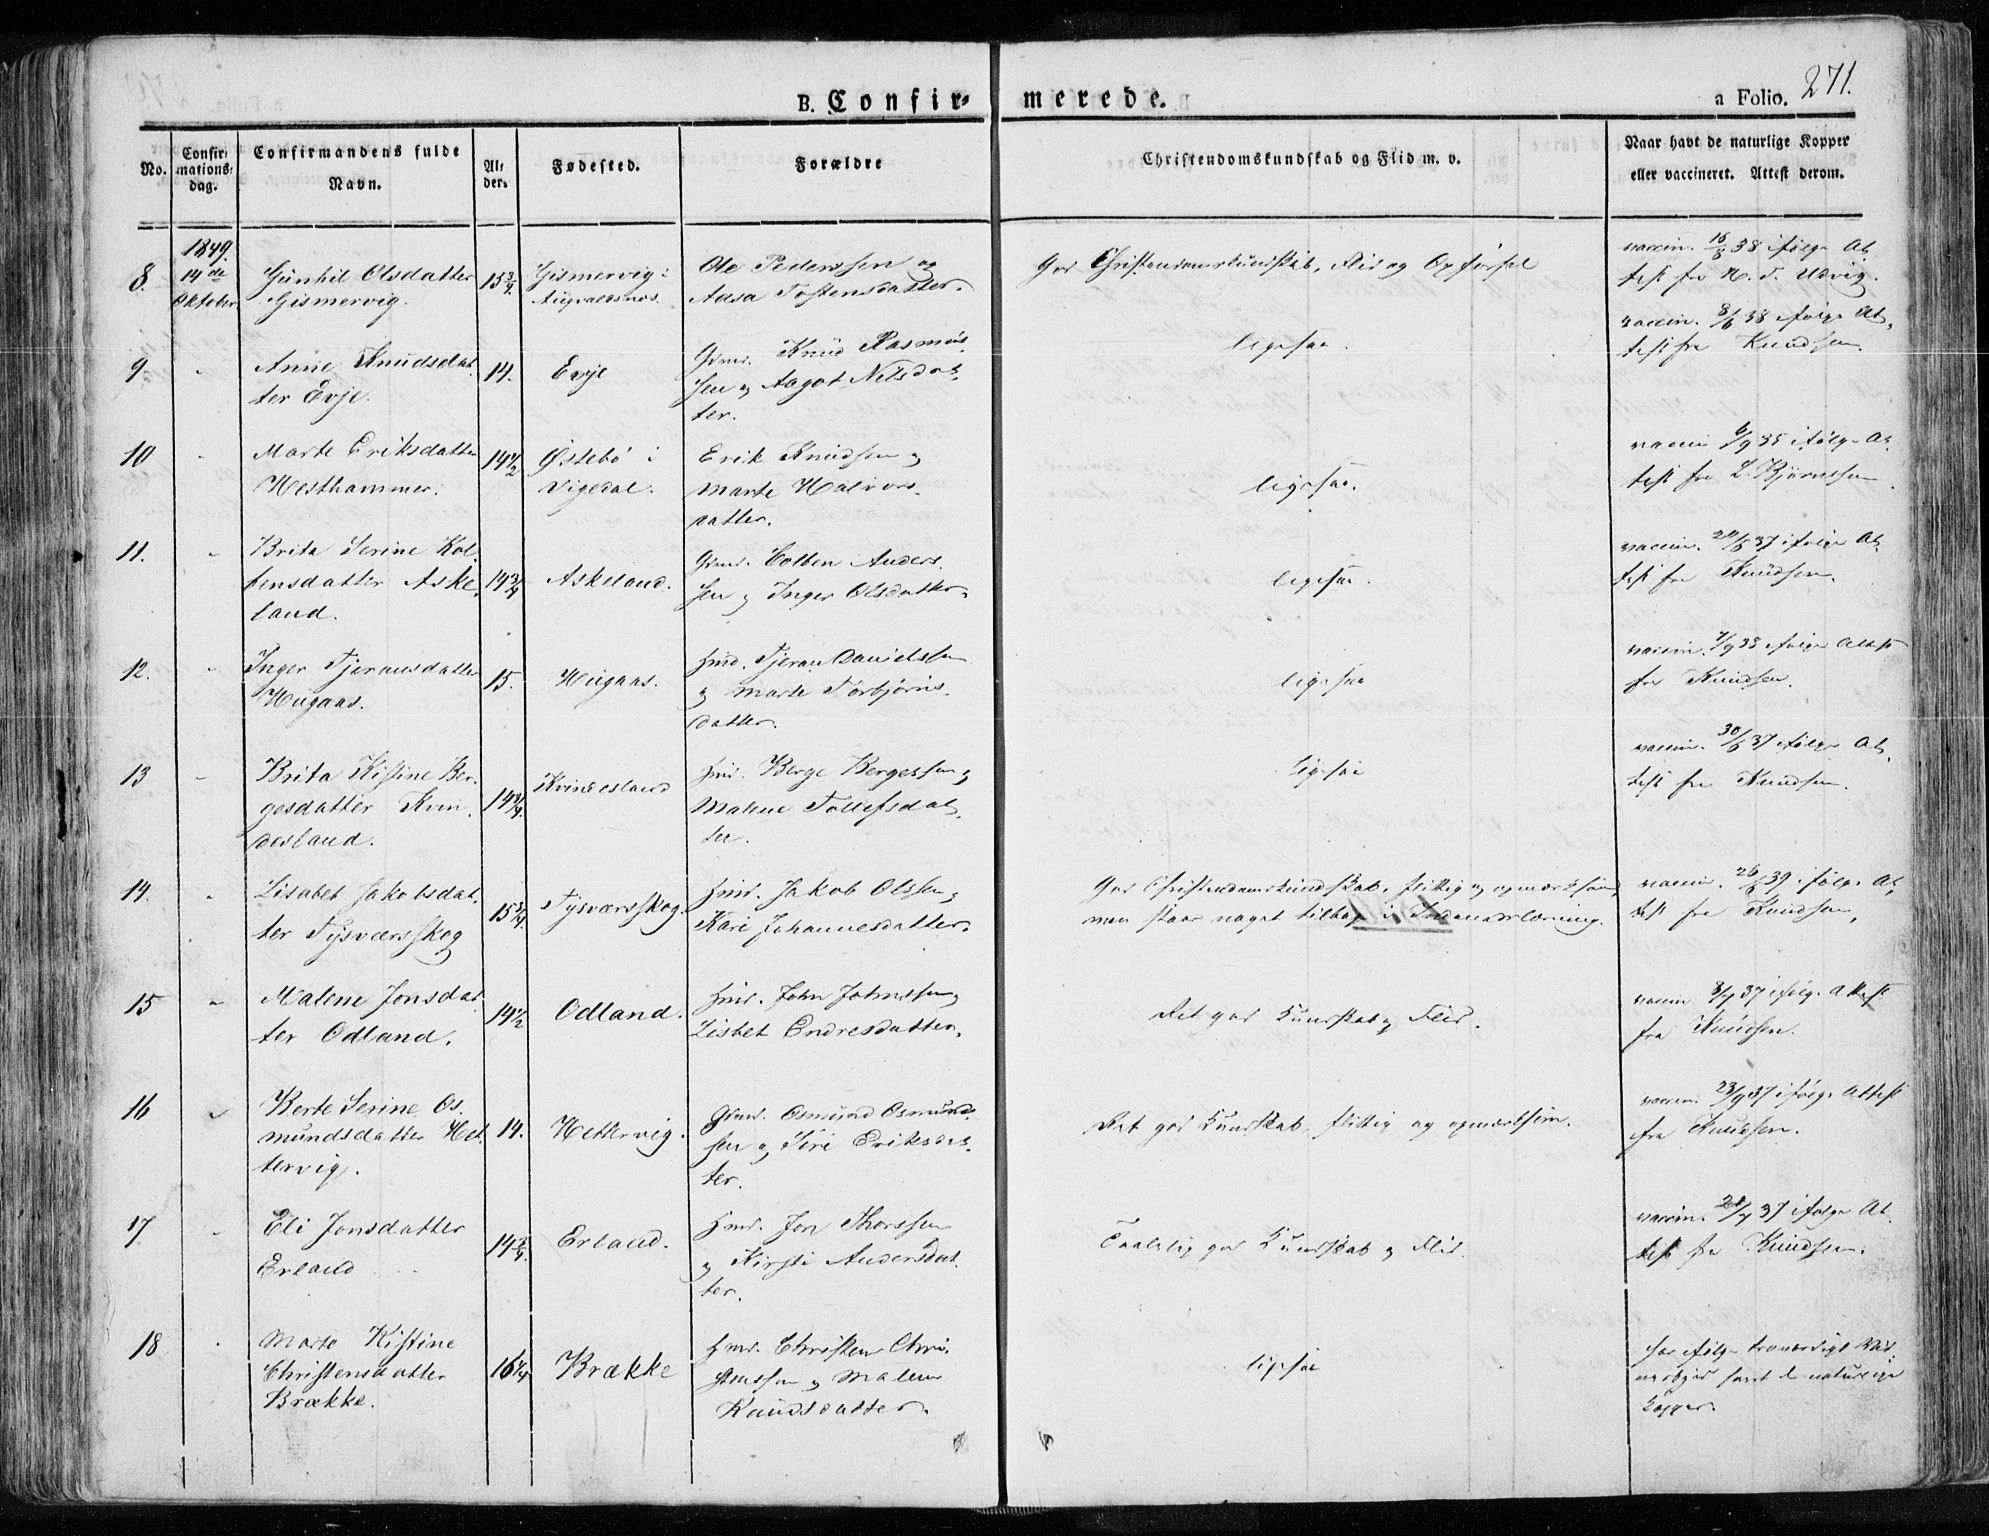 B. Confir- merede.
a Folio. 271.
No.
Confir-
mations-
dag.
Confirmandens fulde
Navn.
Al-
der.
Fødested.
Forældre
Christendomskundskab og Flid m. v.
Naar havt de naturlige Kopper
eller vaccineret. Attest derom.
8.
1849.
14de
Oktober.
Gunhil Olsdatter
Gismervig.
15 3/4.
Gismervig i
Augvaldsnæs.
Ole Pederssen og
Adsa Tostensdatter.
God Christendomskundskab, Flid og Opførsel
vaccin. 16/8 38 ifølge At-
test fra H. T. Udvig.
9.
Anne Knudsdat-
ter Evje.
14.
Evje
Gmd. Knud Rasmus-
sen og Aagot Nilsdat-
ter.
ligesaa.
vaccin. 8/6 38 ifølge At-
test fra Knudsen.
10
Marte Eriksdatter
Hesthammer.
14 1/2
Østebø i
Vigedal.
Erik Knudsen og
Marte Halvors-
datter.
ligesaa.
vaccin 6/9 35 ifølge At-
test fra L. Bjørnssen.
11.
Brita Serine Kol-
bensdatter Aske-
land.
14 3/4
Askeland.
Gmd. Colben Anders-
sen og Inger Olsdatter.
ligesaa.
vaccin. 20/6 37 ifølge At-
test fra Knudsen.
12.
Inger Tjeransdatter
Hugaas.
15.
Hugaas.
Hmd. Tjeran Danielssen
og Marte Torbjørns-
datter.
ligesaa
vaccin. 7/9 35 ifølge Attest
fra Knudsen.
13
Brita Kistine Ber-
gesdatter Kvin-
desland.
14 3/4.
Kvindesland
Hmd. Berge Bergessen og
Malene Tollefsdat-
ter.
ligesaa
vaccin. 30/6 37 ifølge At-
test fra Knudsen.
14.
Lisabet Jakobsdat-
ter Tysværsskog
15 3/4.
Tysværsskog.
Hmd. Jakob Olssen og
Kari Johannesdatter.
God Christendomskundskab, flittig og opmærksom,
men staar noget tilbage i Indenadslæsning.
vaccin. 26/6 39 ifølge At-
test fra Knudsen.
15
Malene Jonsdat-
ter Odland.
14 1/2
Odland.
Hmd. John Johnssen og
Lisbet Endresdatter.
Ret god Kundskab og Flid.
vaccin 8/7 37 ifølge Attest
fra Knudsen.
16
Berte Serine Os-
mundsdatter Het-
tervig.
14.
Hettervig.
Gmd. Osmund Osmund-
sen og Siri Eriksdat-
ter.
Ret god Kundskab, flittig og opmærksom.
vaccin. 23/9 37 ifølge Attest
fra Knudsen.
17.
Eli Jonsdatter
Erland
14 3/4.
Erland.
Hmd. Jon Thorssen
og Kirsti Andersdat-
ter.
Taalelig god Kundskab og Flid.
vaccin. 21/7 37 ifølge At-
test fra Knudsen.
18
Marte Kistine
Christensdatter
Brække.
16 1/4
Brække
Hmd. Christen Chri-
stenssen og Malene
Knudsdatter.
ligesaa
har ifølge troværdigt Vid-
nesbyrd havt de naturlige
Kopper.